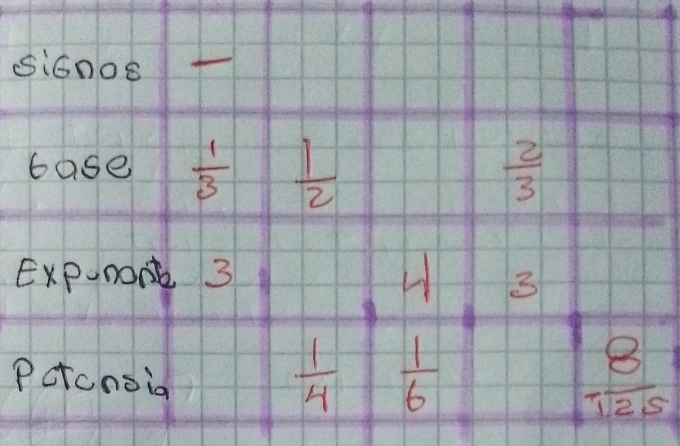 signos −
base 1/3 1/2 2/3
Exponente 3 4 3
Potensia 1/4 1/6 8/125